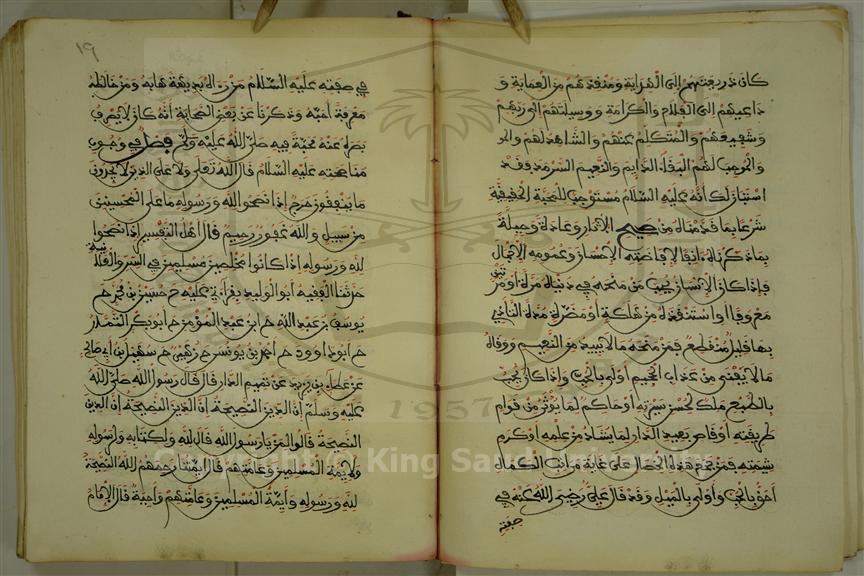 كان ذريعتهم إلى الهداية ومنقذهم من العماية و
داعيهم إلى الفلاح والكرامة ووسيلتهم إلى ربهم
وشفيعهم والمتكلم عنهم والشاهد لهم والموجب
لهم البقاء الدايم والنعيم السرمد فقد
استبان لك أنه عليه السلام مستوجب للمحبة الحقيقية
شرعا بما قدمناه من صحيح الاثار وعادة وجبلة
بما ذكرناه انفا لإفاضته الإحسان وعمومه الإجمال
فإذا كان الإنسان يحب من منحه في دنياه مرة أو مرتين
معروفا او استنقذه من هلكة أو مضرة مدة التأذي
بها قليل منقطع فمن منحه ما لا يبيد من النعيم ووقاه
ما لا يفنى من عذاب الجحيم أولى بالحب وإذا كان يحب
بالطبع ملك لحسن سيرته أو حاكم لما يؤثر من قوام
طريقته أو قاص بعيد الدار لما يشاد من علمه أو كرم
شيمته فمن جمع هذه الخصال على غاية مراتب الكمال
أحق بالحب وأولى بالميل وقد قال علي رضي الله عنه في
صفته
١٩
في صفته عليه السلام من رءاه بديهة هابه ومن خالطه
معرفة أحبه وذكرنا عن بعض الصحابة أنه كان لا يصرف
بصره عنه محبة فيه صلى الله عليه وسلم فصل في وجوب
مناصحته عليه السلام قال الله تعلى ولا على الذين لا يجدون
ما ينفقون حرج إذا نصحوا لله ورسوله ما على المحسنين
من سبيل والله غفور رحيم قال أهل التفسير إذا نصحوا
لله ورسوله إذا كانوا مخلصين مسلمين في السر والعلانية
حدثنا الفقيه أبو الوليد بقراءتي عليه ح حسين بن محمد ح
يوسف بن عبد الله ح ابن عبد المؤمن ح أبو بكر التمار
ح ابو داوود ح احمد بن يونس ح زهير ح سهيل بن أبي صالح
عن عطاء بن يزيد عن تميم الدار قال قال رسول الله صلى الله
عليه وسلم إن الدين النصيحة إن الدين النصيحة إن الدين
النصيحة قالوا لمن يا رسول الله قال لله ولكتابه ولرسوله
ولايمة المسلمين وعامتهم قال ايمتنا رحمهم الله النصيحة
لله ورسوله وايمة المسلمين وعامتهم واجبة قال الإمام
Copyright © King Saud University
1957